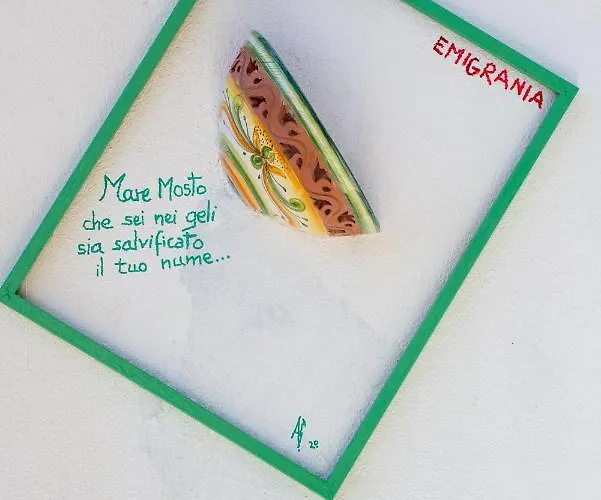 EMIGRANIA
Mare Mosto
che sei nei geli
sia salvificato
il tuo nume...